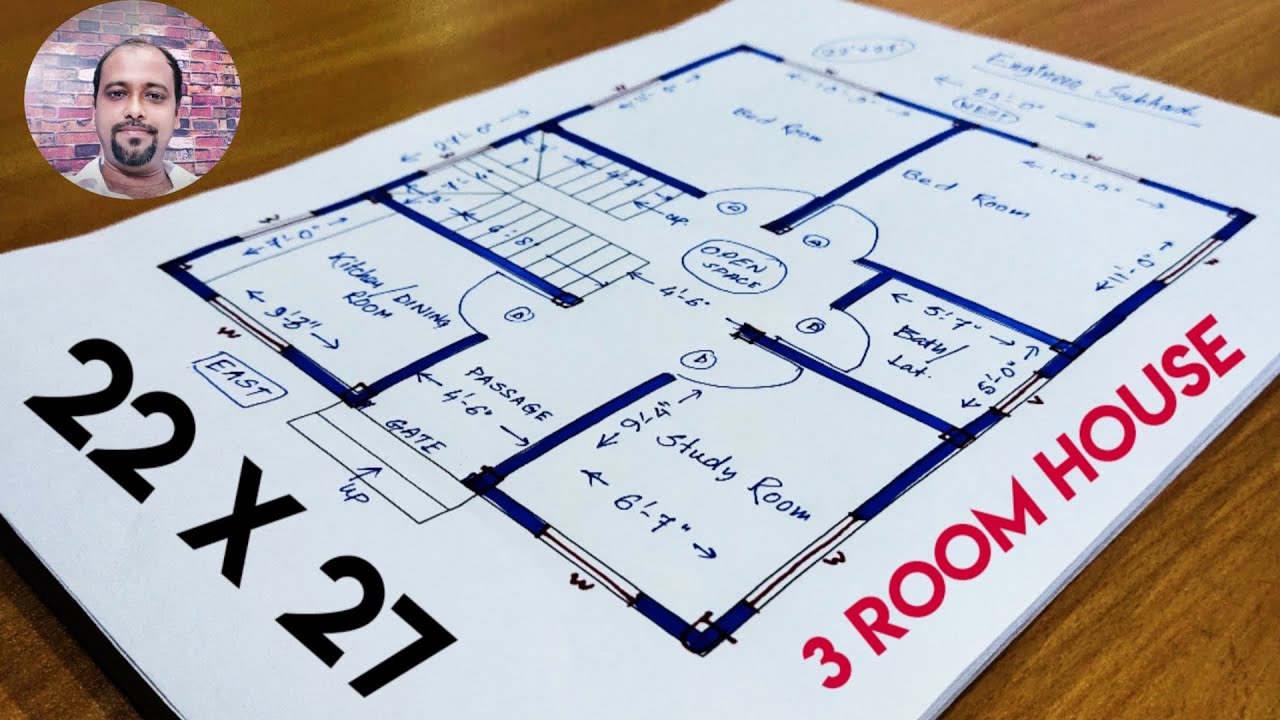 22'×27'
Engineer Subhash
22'-0"
WEST
27'-0"
Bed Room
10'-0"
Bed Room
10'-0"
11'-0"
7'-4"
3'
up
4'-8"
OPEN
SPACE
4'-6"
7'-0"
Kitchen/DINING
ROOM
9'-8"
D
D
D
D
D
5'-7"
Bath/
Lat.
5'-0"
W
EAST
PASSAGE
4'-6"
GATE
up
9'-4"
Study Room
6'-7"
W
W
22 X 27
3 ROOM HOUSE